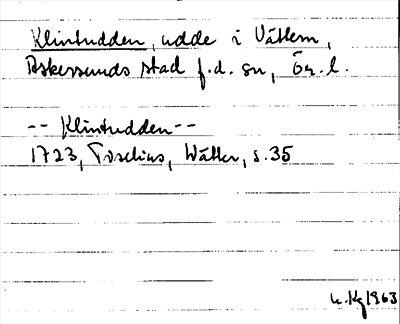 Klintudden, udde i Vättern,
Askersunds stad f.d. sn, Ör. l.
-- Klintudden --
1723, Tiselius, Wätter, s. 35
1963